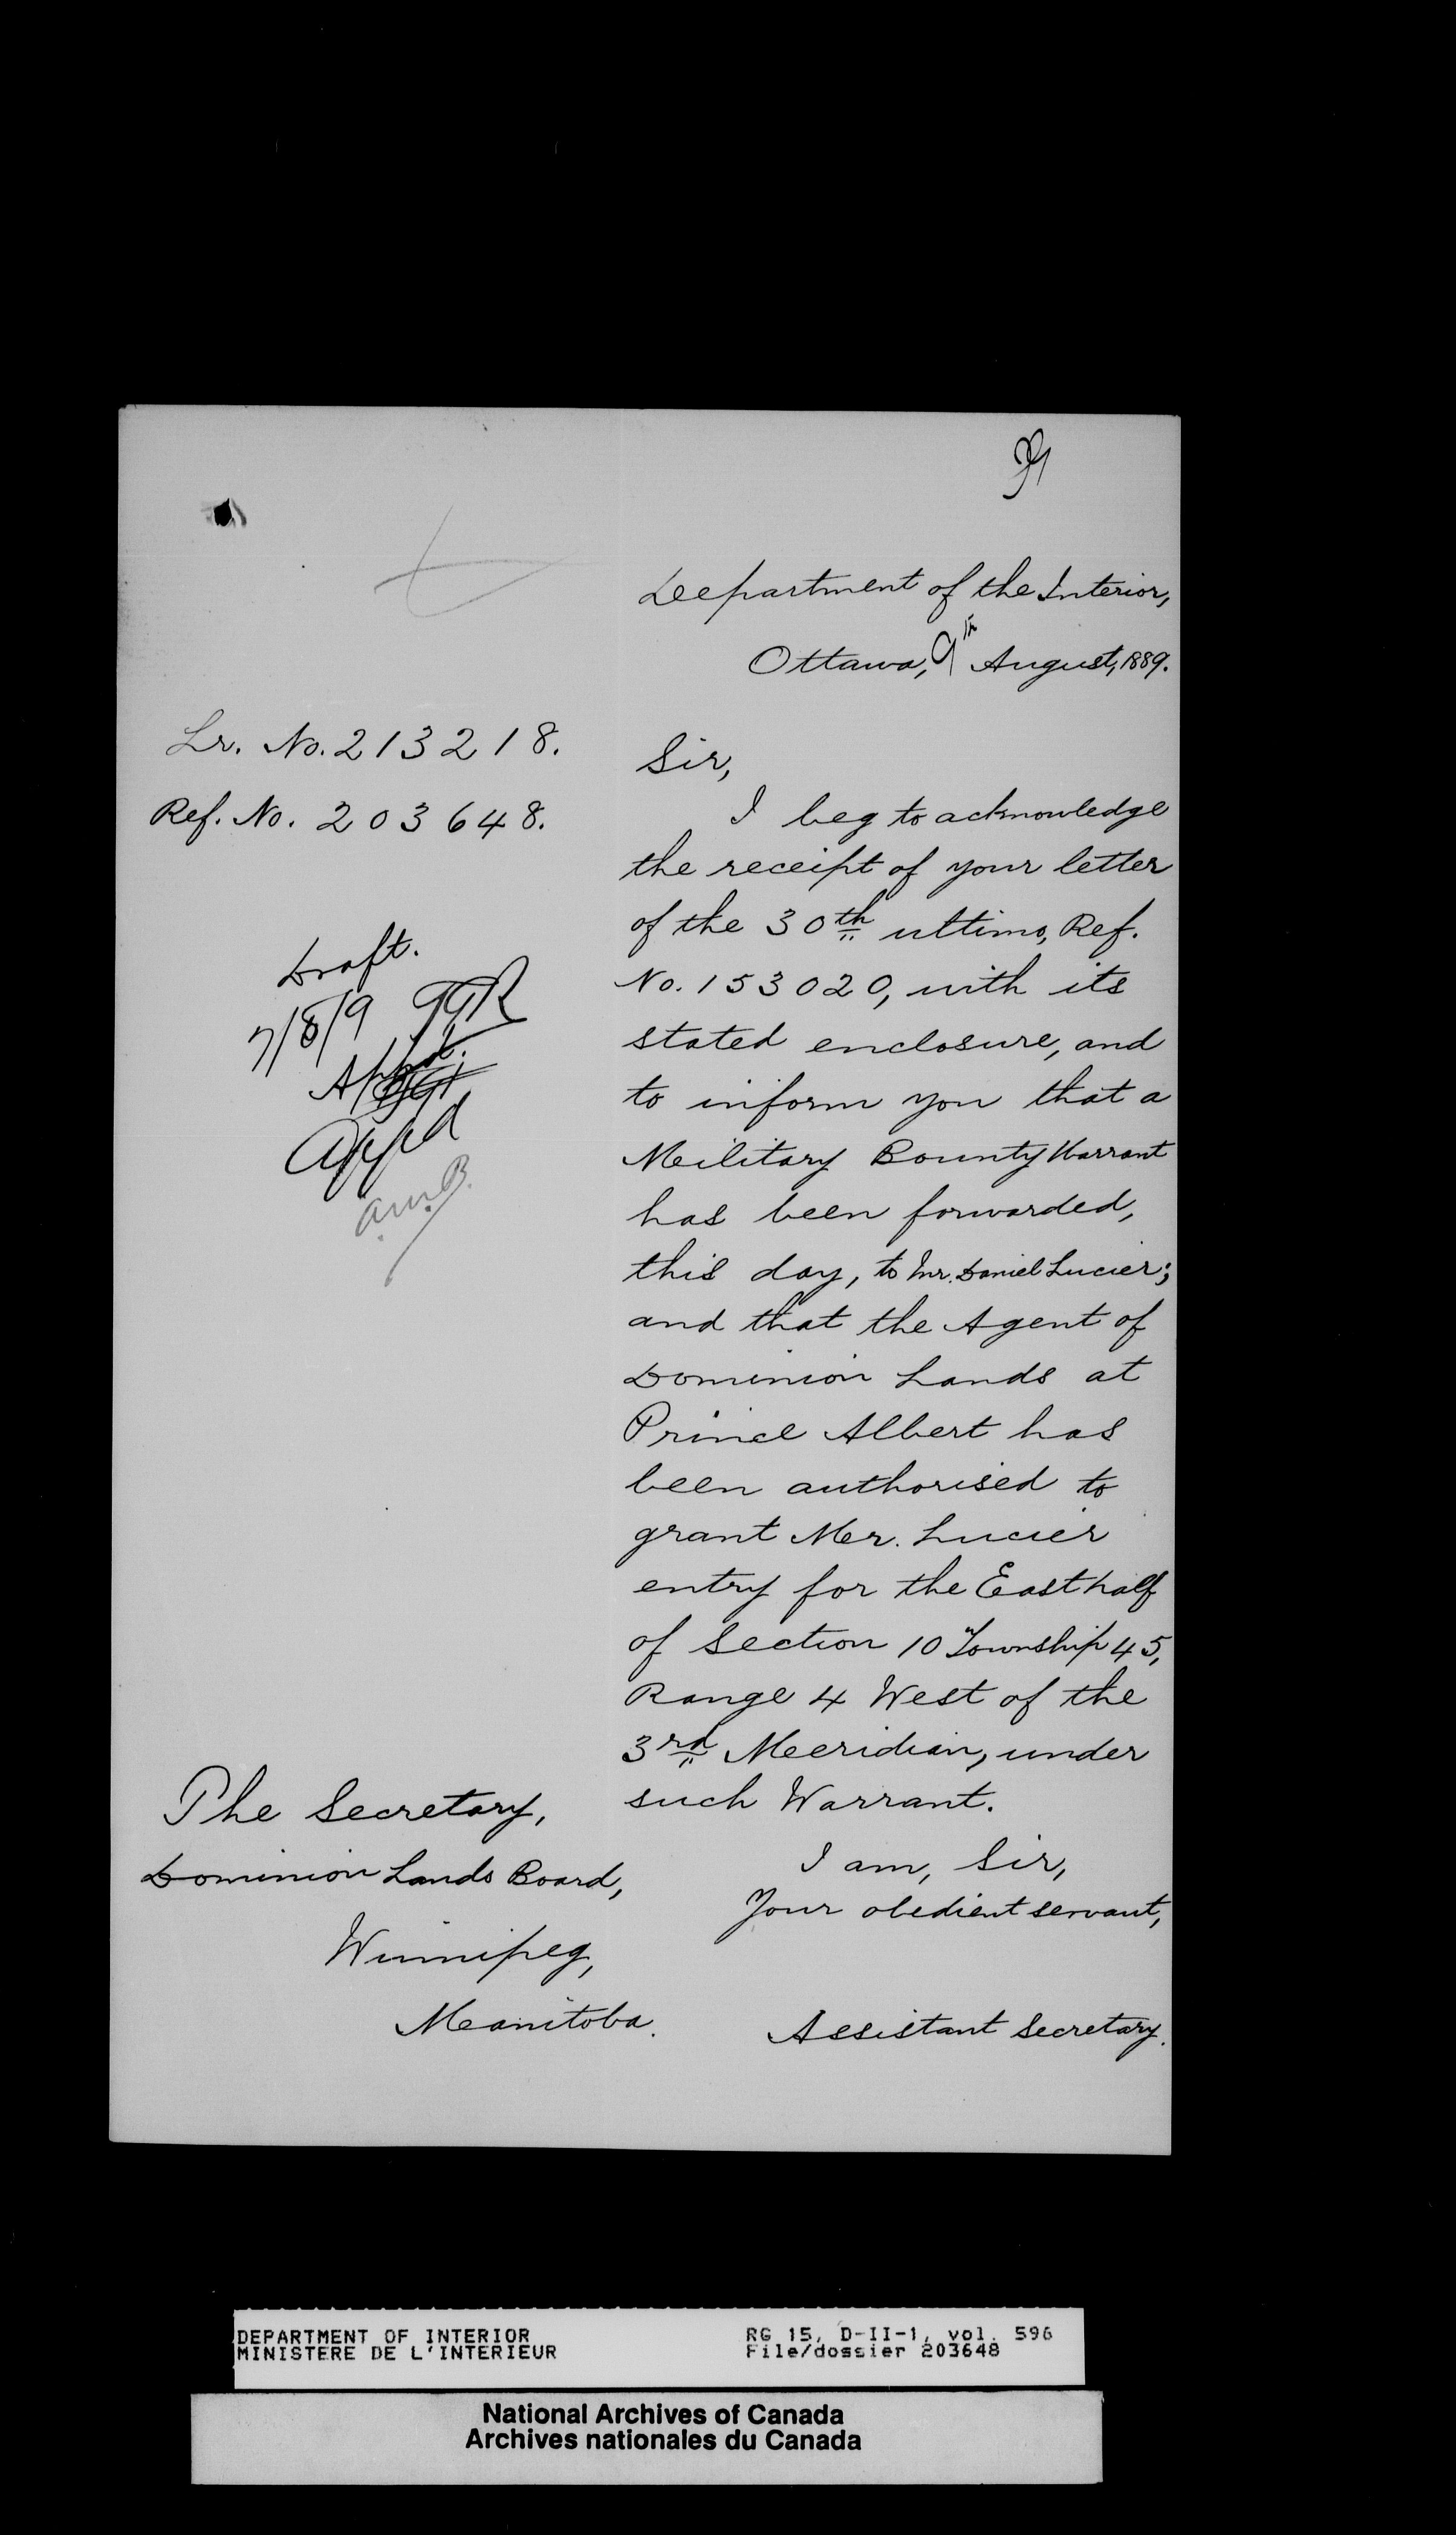 Department of the Interior,
Ottawa, 9th August, 1889.
Lr. No. 213218.
Ref. No. 203648.
Draft.
7/8/9
Appd.
Appd
A.M.B.
Sir,
I beg to acknowledge
the receipt of your letter
of the 30th ultimo, Ref.
No. 153020, with its
stated enclosure, and
to inform you that a
Military Bounty Warrant
has been forwarded,
this day, to Mr. Daniel Lucier;
and that the Agent of
Dominion Lands at
Prince Albert has
been authorised to
grant Mr. Lucier
entry for the East half
of Section 10 Township 45,
Range 4 West of the
3rd Meridian, under
such Warrant.
I am, Sir,
Your obedient servant,
Assistant Secretary.
The Secretary,
Dominion Lands Board,
Winnipeg,
Manitoba.
DEPARTMENT OF INTERIOR
MINISTERE DE L'INTERIEUR
RG 15, D-II-1, vol. 596
File/dossier 203648
National Archives of Canada
Archives nationales du Canada